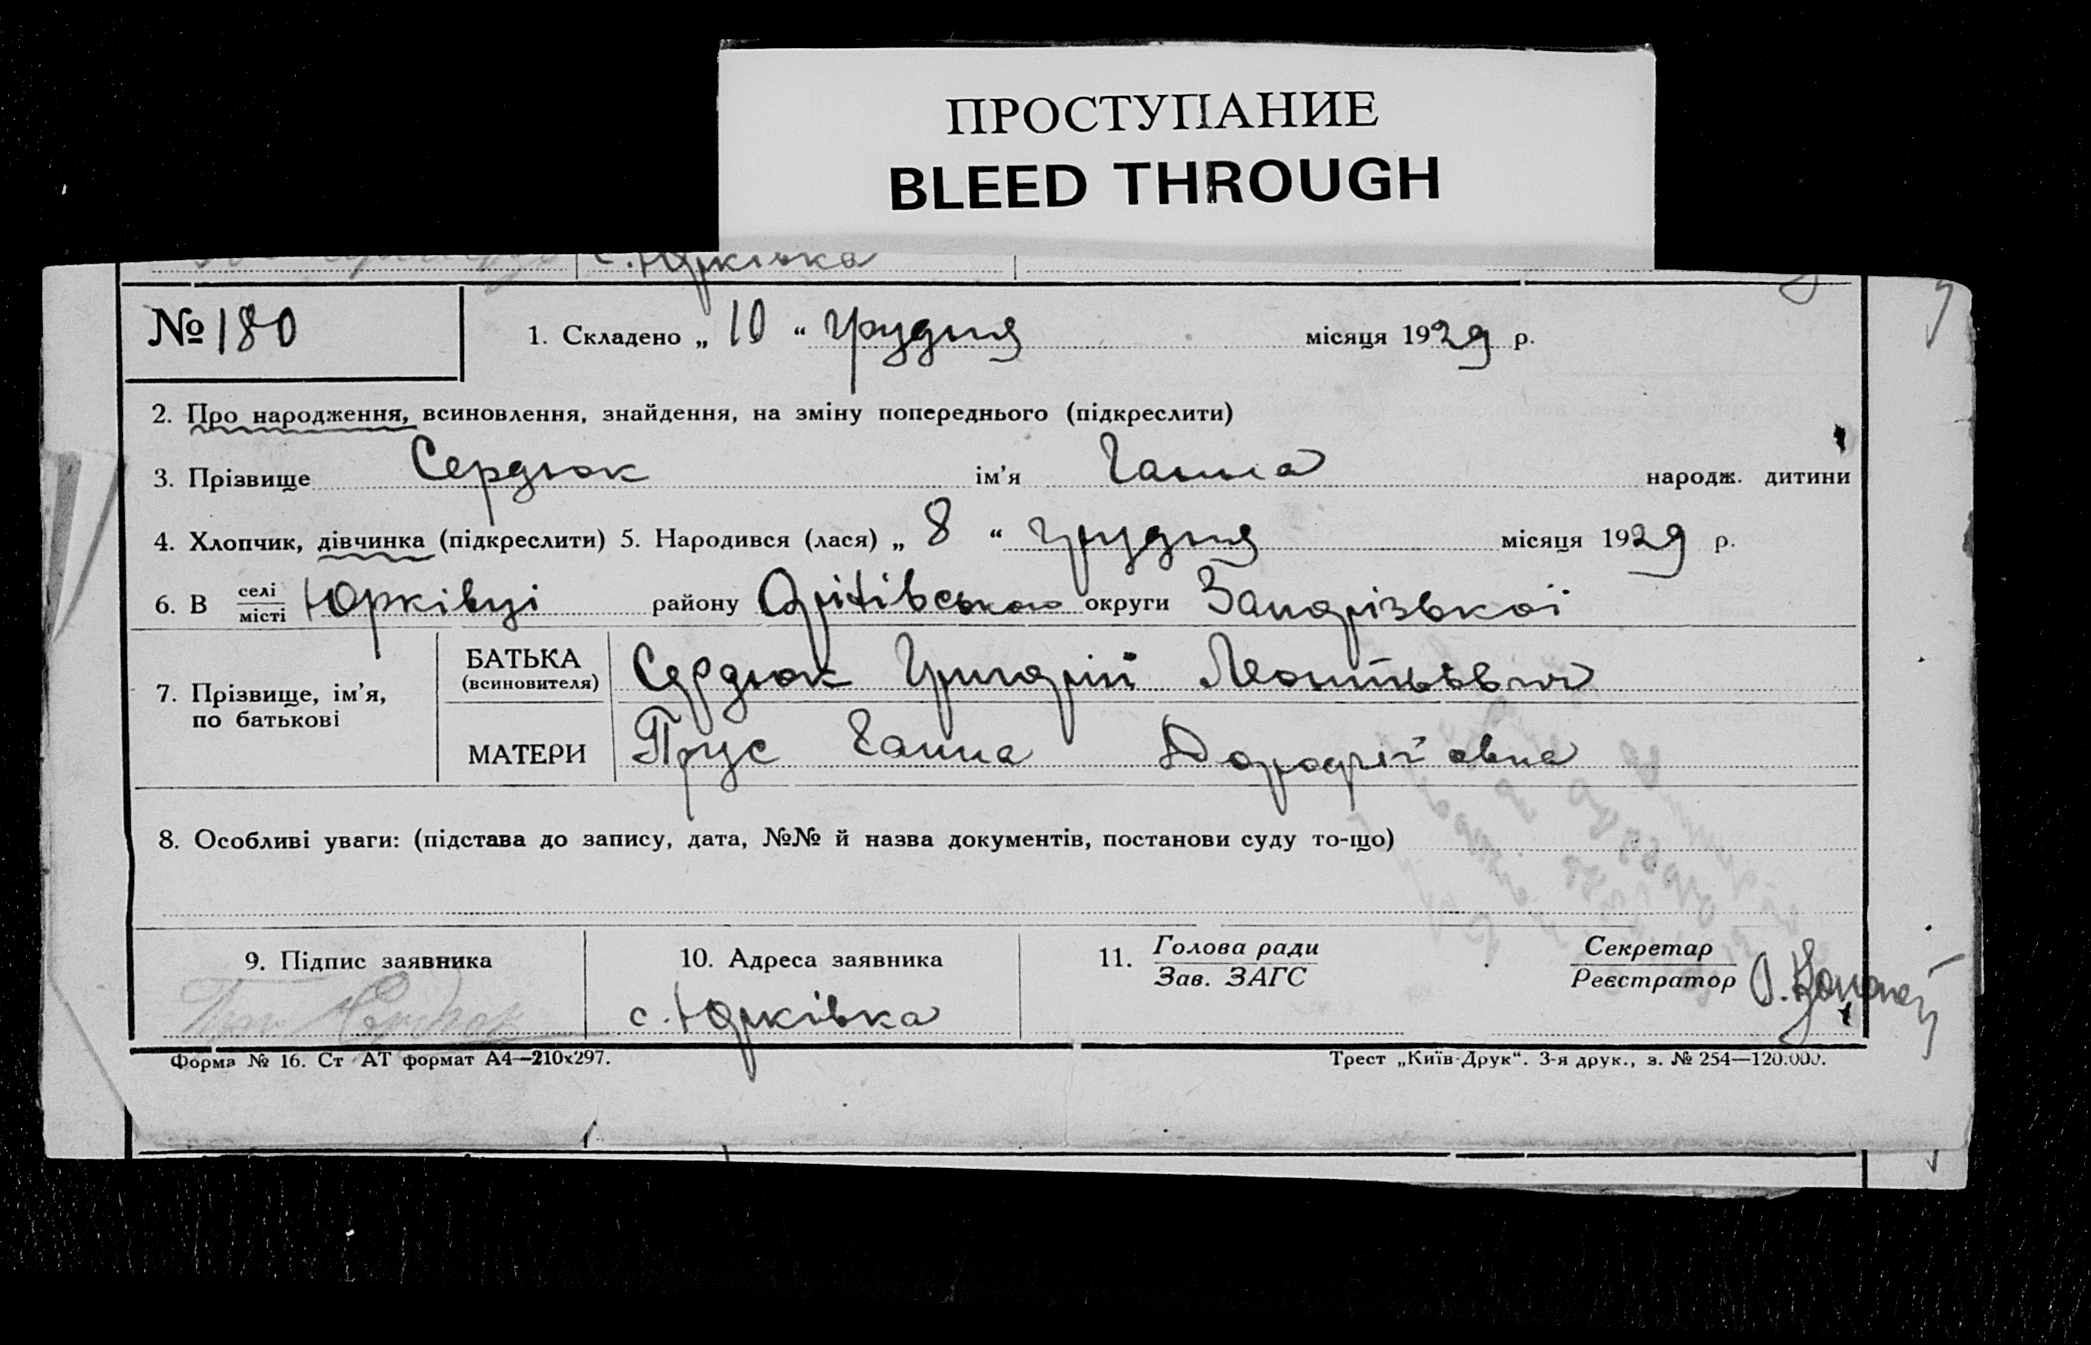 ПРОСТУПАНИЕ
BLEED THROUGH
с. Юрківка
№ 180
1. Складено „ 10 “ грудня місяця 1929 р.
2. Про народження, всиновлення, знайдення, на зміну попереднього (підкреслити)
3. Прізвище Сердюк ім’я Ганна народж. дитини
4. Хлопчик, дівчинка (підкреслити) 5. Народився (лася) „ 8 “ грудня місяця 1929 р.
6. В селі/місті Юрківці району Оріхівського округи Запорізької
7. Прізвище, ім’я, по батькові
БАТЬКА (всиновителя) Сердюк Григорій Леонтьович
МАТЕРИ Прус Ганна Дорофіївна
8. Особливі уваги: (підстава до запису, дата, №№ й назва документів, постанови суду то-що)
9. Підпис заявника
Сердюк
10. Адреса заявника
с. Юрківка
11. Голова ради / Зав. ЗАГС
Секретар / Реєстратор
Форма № 16. Ст АТ формат А4—210х297.
Трест „Київ-Друк“. 3-я друк., з. № 254—120.000.